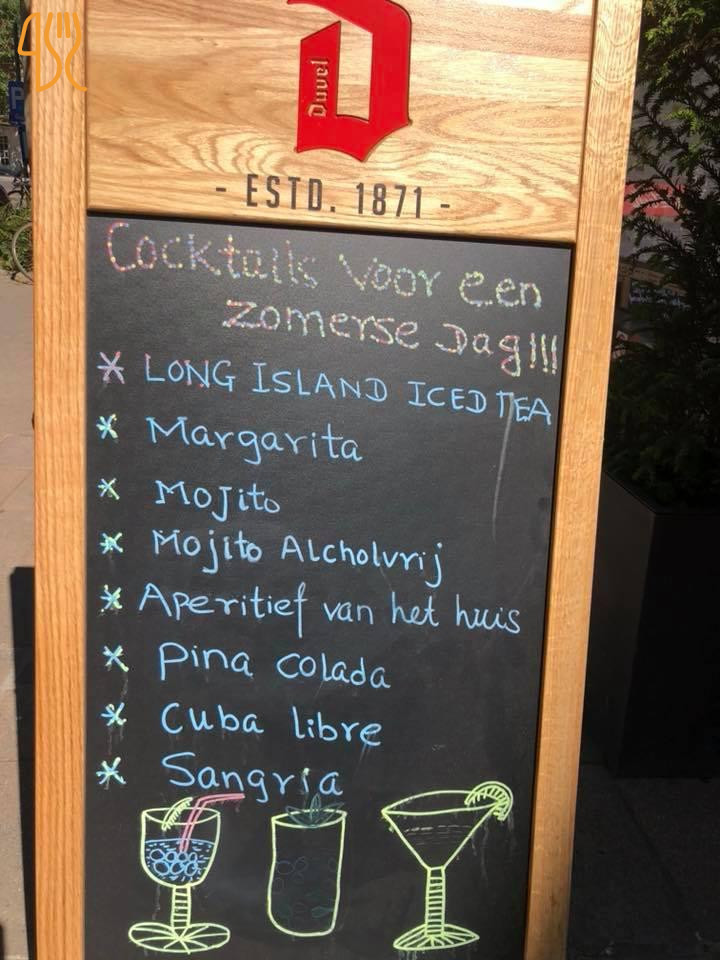 Duvel
- ESTD. 1871 -
Cocktails voor een
zomerse Dag!!!
* LONG ISLAND ICED TEA
* Margarita
* Mojito
* Mojito Alcholvrij
* Aperitief van het huis
* Pina colada
* Cuba libre
* Sangria